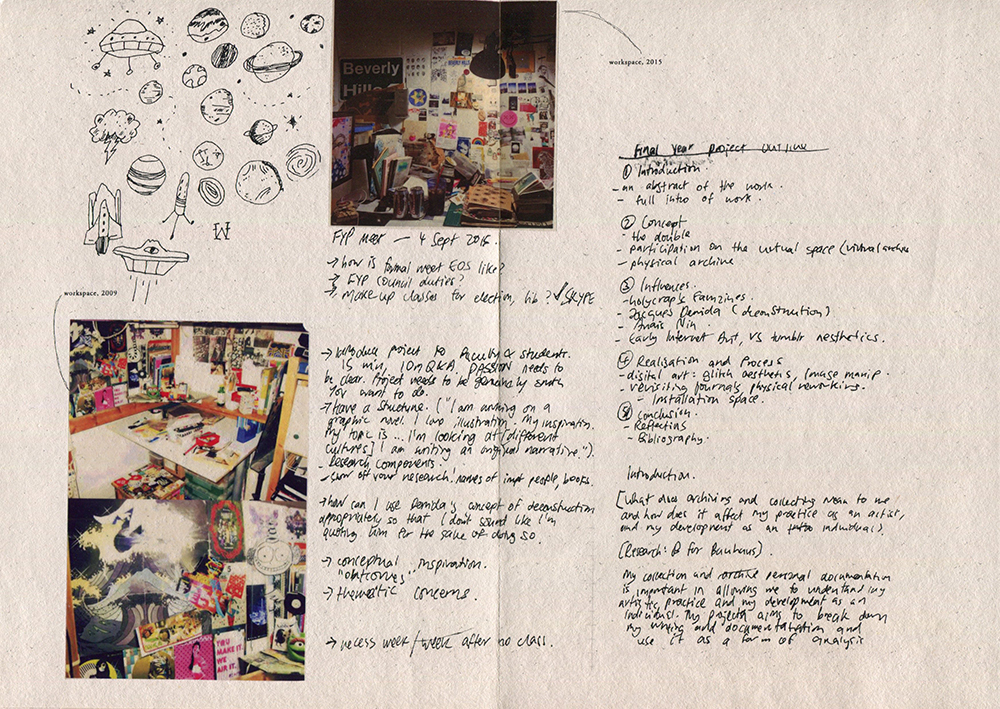 workspace, 2009
Beverly
Hills
YOU
MAKE IT.
WE
AIR IT.
FYP meet — 4 Sept 2015.
→ how is formal meet EOS like?
→ FYP council duties?
→ make up classes for election, lib? SKYPE
→ Introduce project to Faculty & students.
15 min, 10m Q&A. PASSION needs to
be clear. Project needs to be genuinely smth
you want to do.
→ Have a structure. ("I am working on a
graphic novel. I love illustration. My inspiration.
My topic is ... I'm looking at [different
cultures] I am writing an original narrative.").
- Research components.
- show off your research! names of impt people, books.
→ how can I use Derrida's concept of deconstruction
appropriately so that I don't sound like I'm
quoting him for the sake of doing so.
→ conceptual inspiration.
"outcomes"
→ thematic concerns.
→ recess week / week after no class.
workspace, 2015
Final Year Project Outline
① Introduction.
- an abstract of the work.
- full intro of work.
② Concept
- the double
- participation on the virtual space (virtual archive
- physical archive
③ Influences.
- holycrap's Famzines.
- Jacques Derrida (deconstruction)
- Anais Nin
- Early Internet Art, VS tumblr aesthetics.
④ Realisation and Process
- digital art: glitch aesthetics, image manip.
- revisiting journals, physical reworking.
- Installation space.
⑤ Conclusion.
- Reflections
- Bibliography.
Introduction.
[What does archiving and collecting mean to me
and how does it affect my practice as an artist,
and my development as an individual?]
(Research: B for Bauhaus).
My collection and archive personal documentation
is important in allowing me to understand my
artistic practice and my development as an
individual. My projects aims to break down
my writing and documentation and
use it as a form of analysis